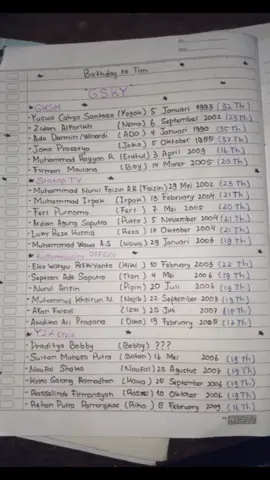 Birthday to Tim
"GSKY"
GWSM
- Yuswo Cahyo Santoso (Yoyok) 5 Januari 1993 (32 Th)
- Zidan Alfarikh (Nemo) 6 September 2002 (23 Th)
- Ado Darmin/Wnardi (ADO) 4 Januari 1990 (35 Th)
- Joko Prasetyo (Joko) 5 Oktober 1988 (37 Th)
- Muhammad Rayyan R (Enthul) 3 April 2009 (16 Th)
- Firman Maulana (Boy) 14 Maret 2005 (20 Th)
TV
- Muhammad Nurul Faizin A.R (Faizin) 29 Mei 2002 (23 Th)
- Muhammad Irpak (Irpak) 13 February 2004 (21 Th)
- Feri Purnomo (Feri) 7 Mei 2005 (20 Th)
- Ardian Agung Saputra (Putra) 5 November 2004 (21 Th)
- Luky Reza Kurnia (Reza) 17 Oktober 2004 (21 Th)
- Muhammad Wawa A.S (wawa) 29 Januari 2006 (19 Th)
- Eko Wahyu (Kiki) 10 February 2003 (22 Th)
- Seperan Ade Saputra (Tian) 4 Mei 2006 (19 Th)
- Nurul Arifin (Pipin) 20 Juli 2006 (19 Th)
- Muhammad Khoirun N. (Najib) 22 September 2007 (18 Th)
- Afan Faisal 20 Juli 2007 (18 Th)
- Andika Ari Pradana 19 February 2008 (17 Th)
YZK
- Praditya Bobby (Bobby) ???
- Sultan Mahesa Putra (Sultan) 16 Mei 2006 (19 Th)
- Naufal Shaka (Naufal) 25 Agustus 2006 (19 Th)
- Ramadhan 20 September 2006 (19 Th)
- Rassalindo Firmansyah 10 Oktober 2006 (19 Th)
- Rehan Putra Pamungkas 8 February 2009 (16 Th)